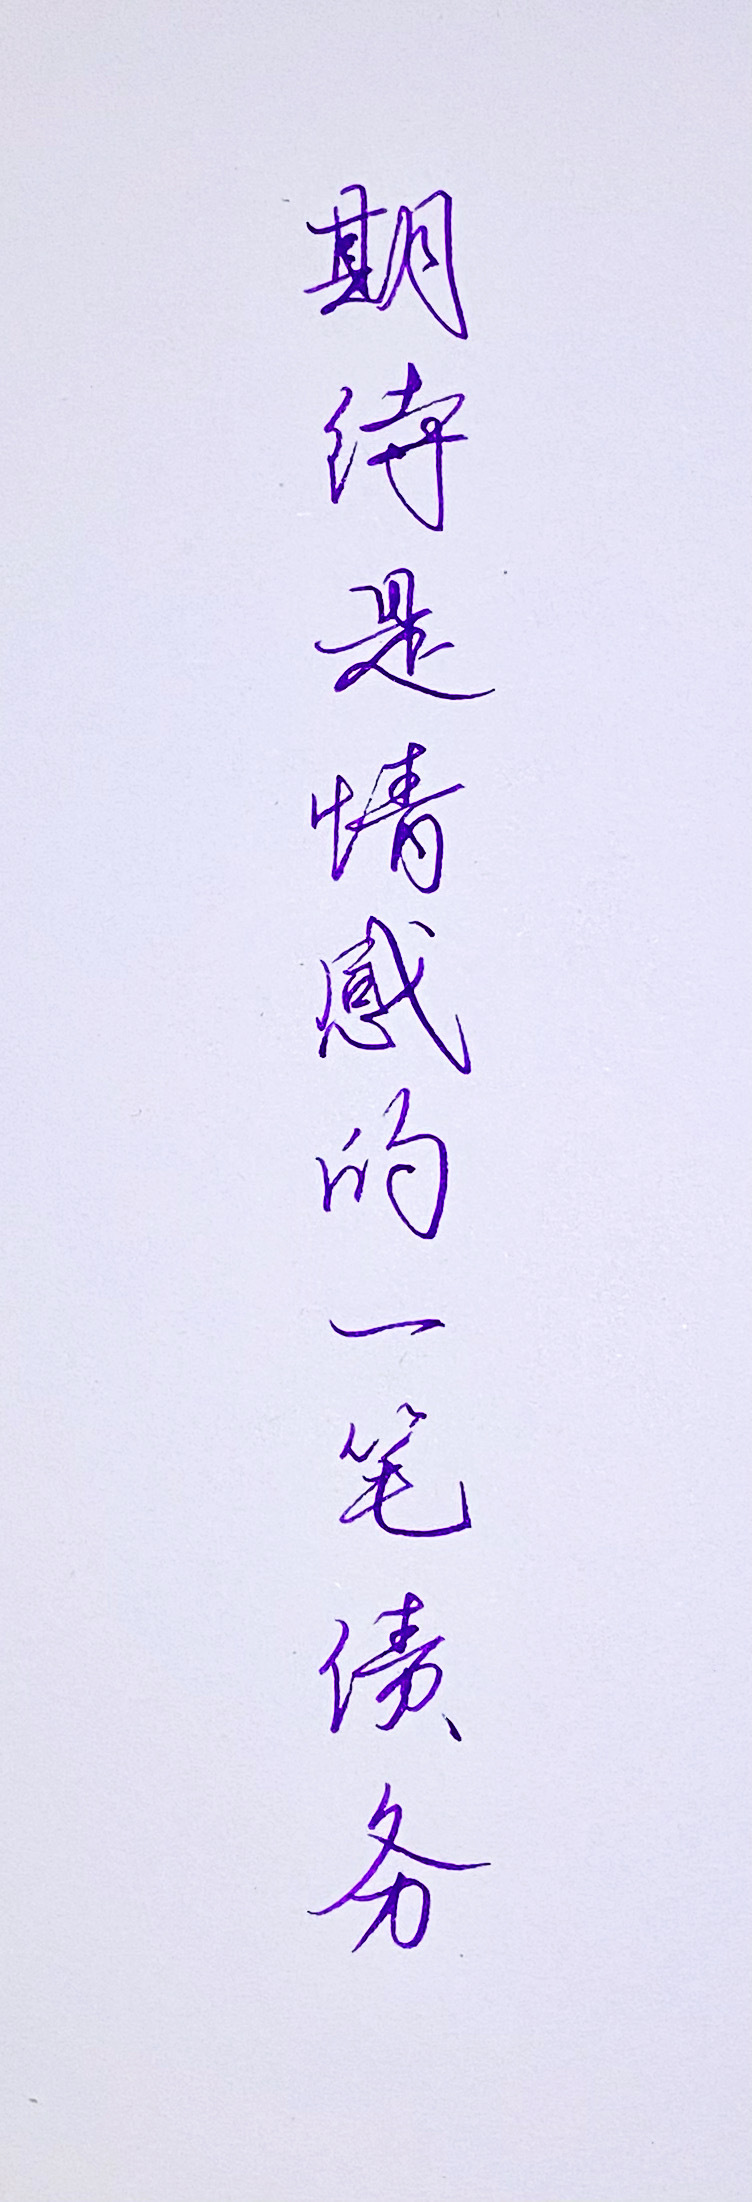 期待是情感的一笔债务